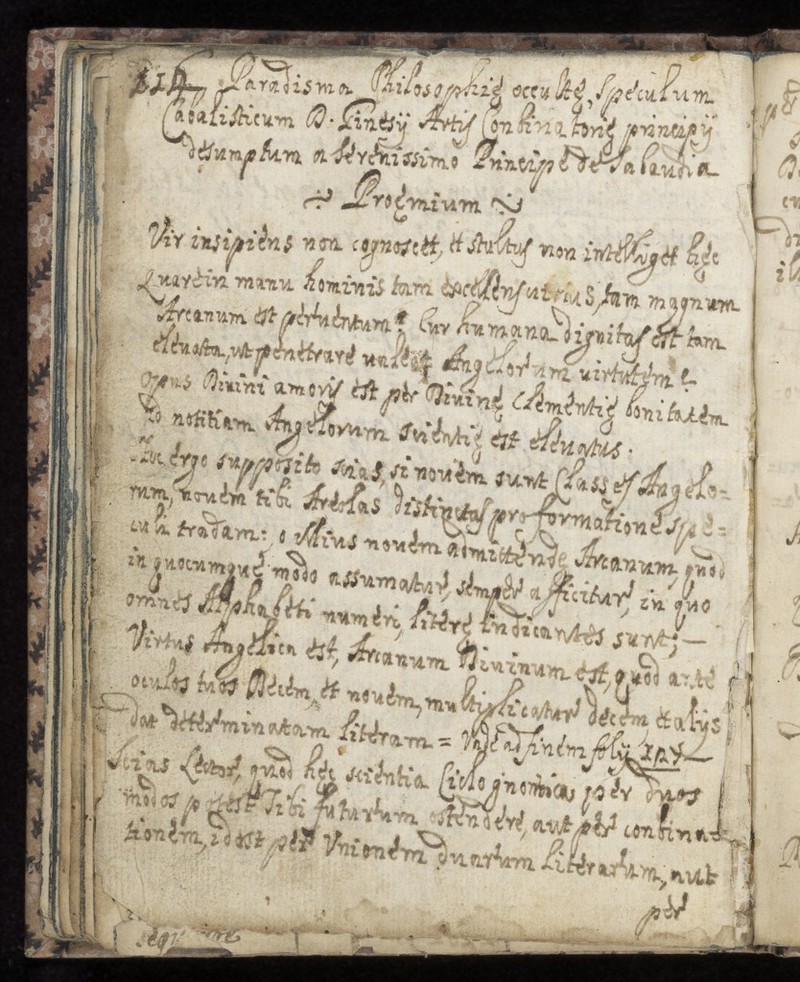 Paradisma Philosophię occultę, speculum
Cabalisticum D. Ginesÿ Artis Conbinatorię principÿ
desumptum a serenissimo Principe de Salaudia
Proęmium
Vir insipiens non cognoscet, et stultus non intelliget hęc
Quare in manu hominis tam excellens uirtus, tam magnum
Arcanum est peruentum? Cur humana dignitas est tam
eleuata, ut penetrare ualeat Angelorum uirtutem?
opus Diuini amoris est per Diuinę Clementię bonitatem
ad notitiam Angelorum scientię est eleuatus.
Hoc ergo supposito scias, si nouem sunt Classes Angelo=
rum, nouem tibi Areolas distinctas pro formatione spe=
culi tradam: o illius nouem admittendę Arcanum, quod
in quocumque modo assumatur, semper afficitur, in quo
omnes Alphabeti numeri, literę indicantes sunt; —
Virtus Angelica est, Arcanum Diuinum est, quod arte
oculos tuos Decem, et nouem, multiplicatur decem, et alÿs
dat determinatam literam = Vide ad finem folÿ
Scias Lector, quod hęc scientia Ciclognomica per duos
modos potest Tibi futurum ostendere, aut per conbina=
tionem, id est per Vnionem duarum literarum, aut
per